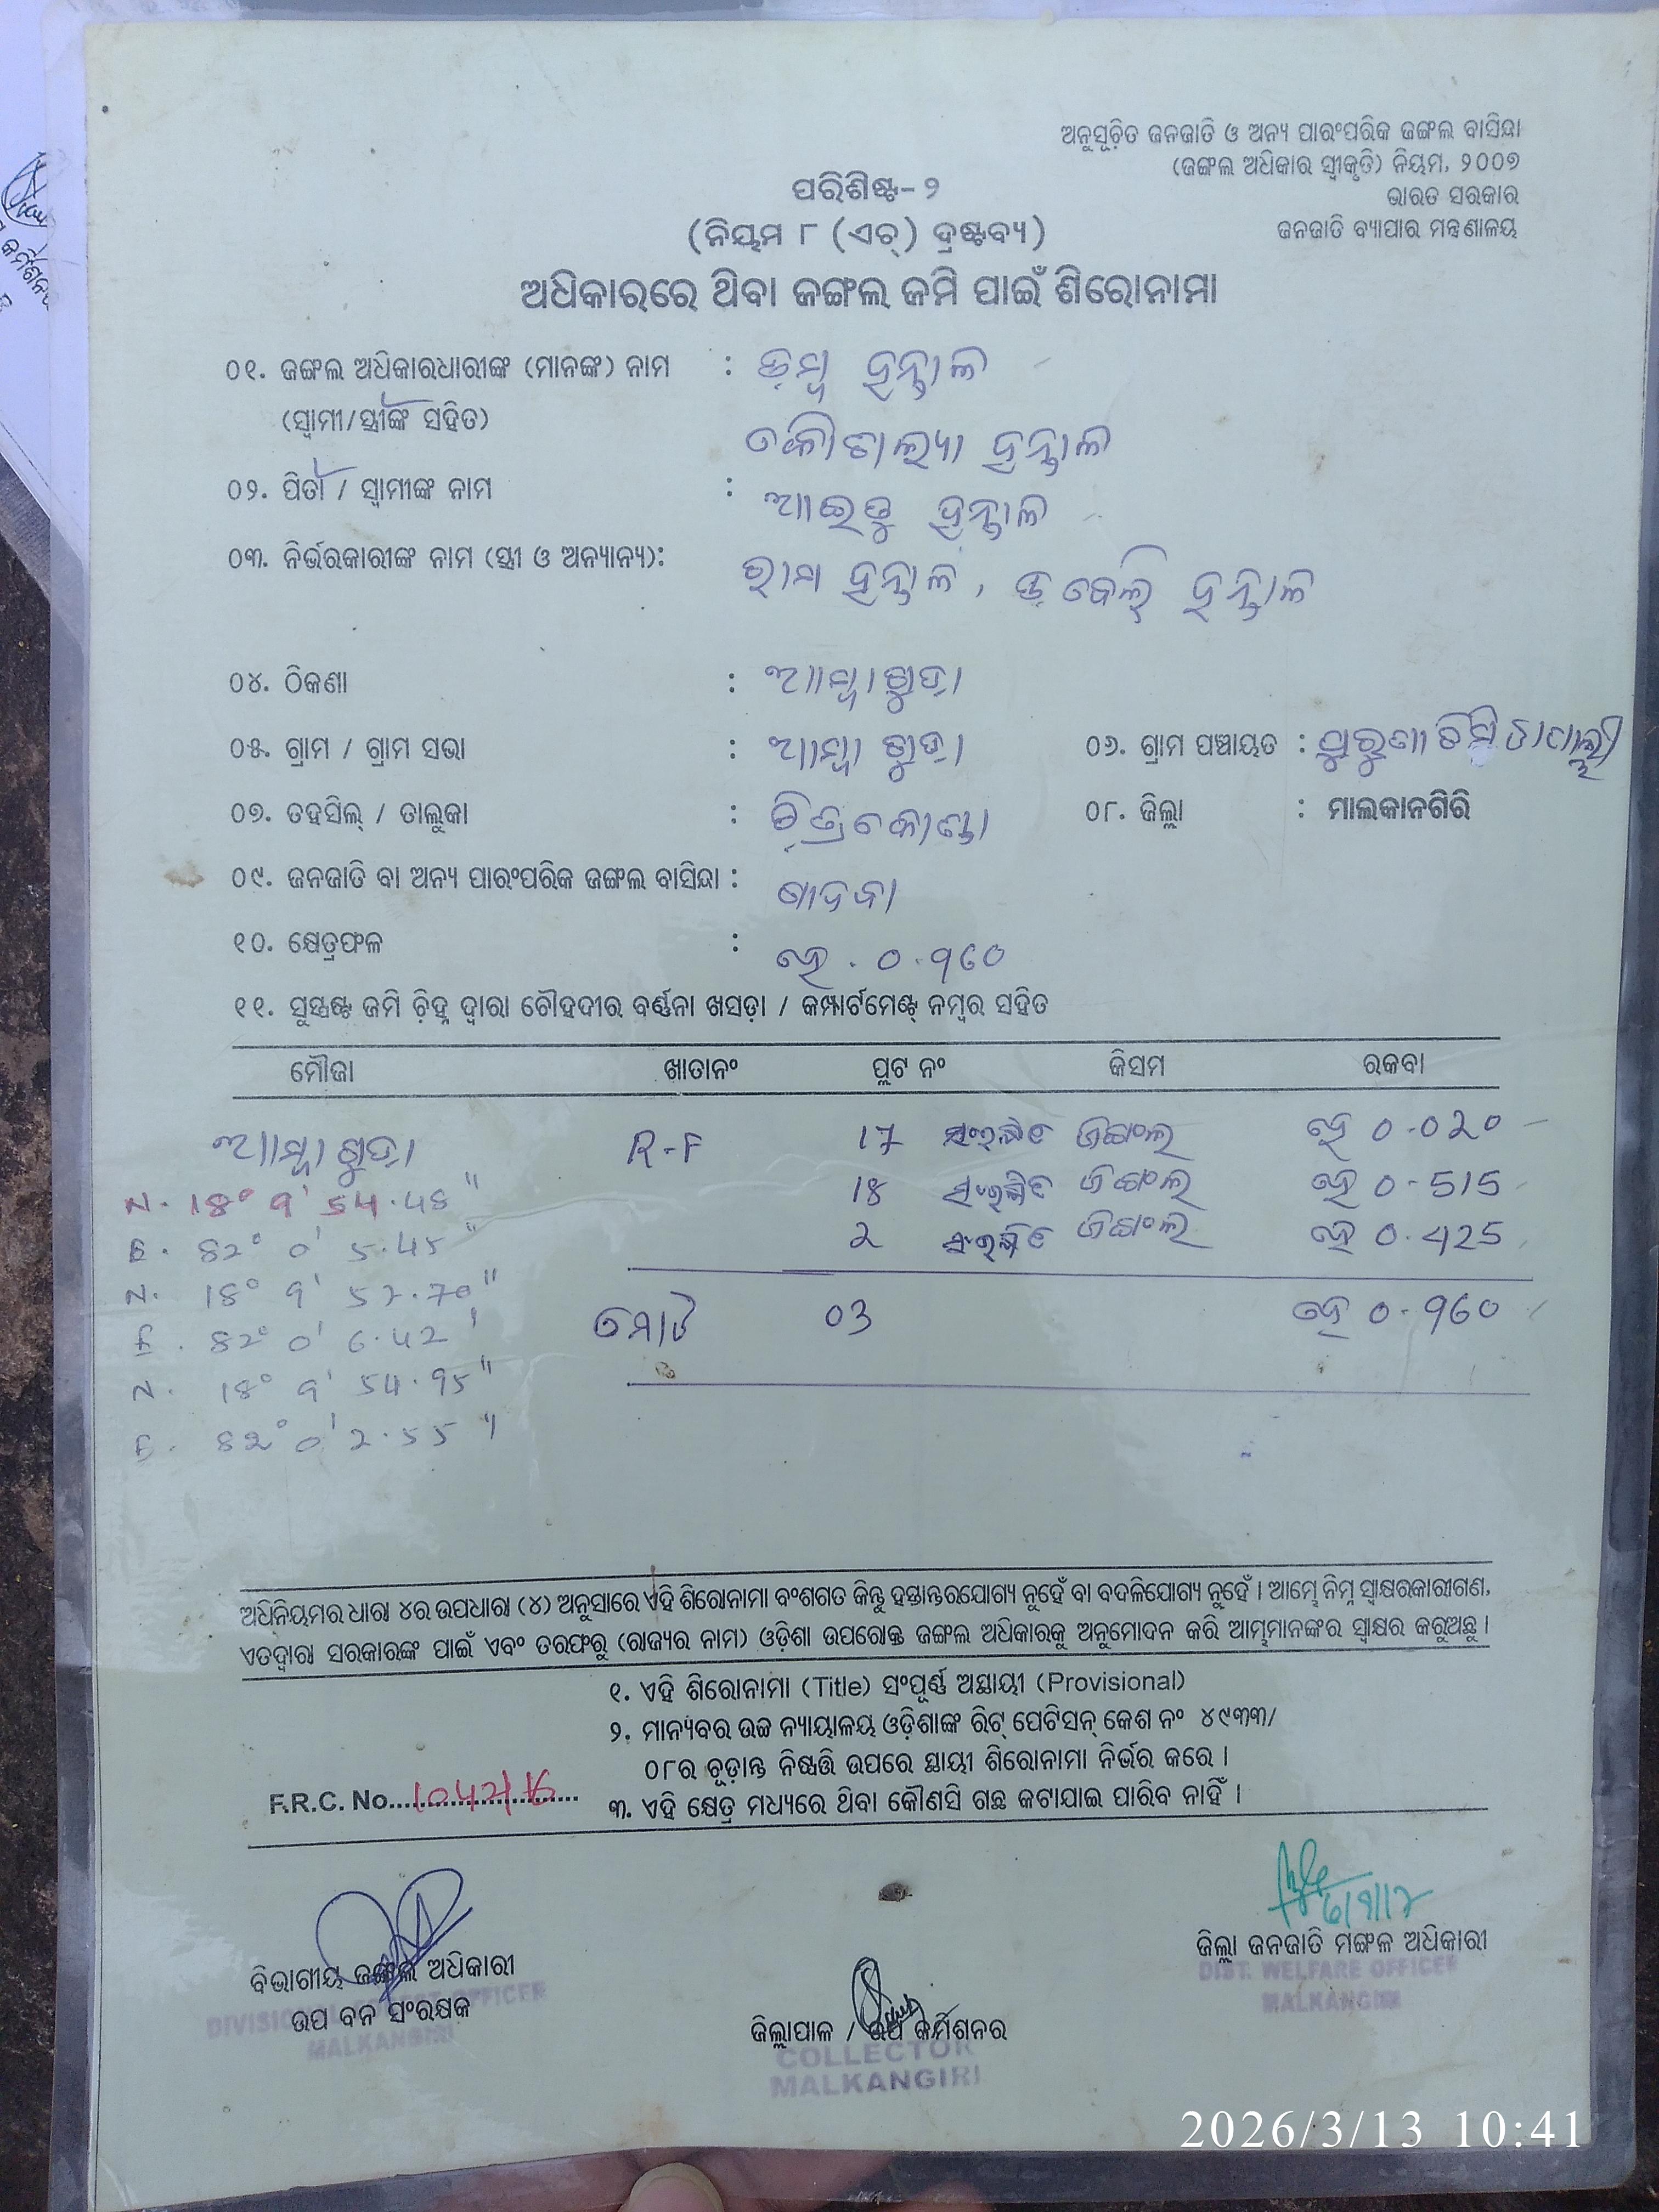 ଅନୁସୂଚିତ ଜନଜାତି ଓ ଅନ୍ୟ ପାରଂପରିକ ଜଙ୍ଗଲ ବାସିନ୍ଦା
(ଜଙ୍ଗଲ ଅଧିକାର ସ୍ୱୀକୃତି) ନିୟମ, ୨୦୦୭
ଭାରତ ସରକାର
ଜନଜାତି ବ୍ୟାପାର ମନ୍ତ୍ରଣାଳୟ
ପରିଶିଷ୍ଟ-୨
(ନିୟମ ୮ (ଏଚ୍) ଦ୍ରଷ୍ଟବ୍ୟ)
ଅଧିକାରରେ ଥିବା ଜଙ୍ଗଲ ଜମି ପାଇଁ ଶିରୋନାମା
୦୧. ଜଙ୍ଗଲ ଅଧିକାରଧାରୀଙ୍କ (ମାନଙ୍କ) ନାମ : ଡମ୍ବ ହନ୍ତାଳ
(ସ୍ୱାମୀ/ସ୍ତ୍ରୀଙ୍କ ସହିତ) କୌଶଲ୍ୟା ହନ୍ତାଳ
୦୨. ପିତା / ସ୍ୱାମୀଙ୍କ ନାମ : ଆଇତୁ ହନ୍ତାଳ
୦୩. ନିର୍ଭରକାରୀଙ୍କ ନାମ (ସ୍ତ୍ରୀ ଓ ଅନ୍ୟାନ୍ୟ): ରାମ ହନ୍ତାଳ, ହନ୍ତାଳ
୦୪. ଠିକଣା : ଆମ୍ବାଗୁଡ଼ା
୦୫. ଗ୍ରାମ / ଗ୍ରାମ ସଭା : ଆମ୍ବାଗୁଡ଼ା ୦୬. ଗ୍ରାମ ପଞ୍ଚାୟତ :
୦୭. ତହସିଲ୍ / ତାଲୁକା : ଚିତ୍ରକୋଣ୍ଡା ୦୮. ଜିଲ୍ଲା : ମାଲକାନଗିରି
୦୯. ଜନଜାତି ବା ଅନ୍ୟ ପାରଂପରିକ ଜଙ୍ଗଲ ବାସିନ୍ଦା : ଗାଦବା
୧୦. କ୍ଷେତ୍ରଫଳ : ହେ. ୦.୯୬୦
୧୧. ସୁସ୍ପଷ୍ଟ ଜମି ଚିହ୍ନ ଦ୍ୱାରା ଚୌହଦୀର ବର୍ଣ୍ଣନା ଖସଡ଼ା / କମ୍ପାର୍ଟମେଣ୍ଟ୍ ନମ୍ବର ସହିତ
ମୌଜା ଖାତାନଂ ପ୍ଲଟ ନଂ କିସମ ରକବା
ଆମ୍ବାଗୁଡ଼ା R-F 17 ସଂରକ୍ଷିତ ଜଙ୍ଗଲ ହେ 0.020
N. 18° 9' 54.48" 18 ସଂରକ୍ଷିତ ଜଙ୍ଗଲ ହେ 0-515
E. 82° 0' 5.45" 2 ସଂରକ୍ଷିତ ଜଙ୍ଗଲ ହେ 0.425
N. 18° 9' 57.70"
E. 82° 0' 6.42" ମୋଟ 03 ହେ 0.960
N. 18° 9' 54.95"
E. 82° 0' 2.55"
ଅଧିନିୟମର ଧାରା ୪ର ଉପଧାରା (୪) ଅନୁସାରେ ଏହି ଶିରୋନାମା ବଂଶଗତ କିନ୍ତୁ ହସ୍ତାନ୍ତରଯୋଗ୍ୟ ନୁହେଁ ବା ବଦଳିଯୋଗ୍ୟ ନୁହେଁ । ଆମ୍ଭେ ନିମ୍ନ ସ୍ୱାକ୍ଷରକାରୀଗଣ,
ଏତଦ୍ୱାରା ସରକାରଙ୍କ ପାଇଁ ଏବଂ ତରଫରୁ (ରାଜ୍ୟର ନାମ) ଓଡ଼ିଶା ଉପରୋକ୍ତ ଜଙ୍ଗଲ ଅଧିକାରକୁ ଅନୁମୋଦନ କରି ଆମ୍ଭମାନଙ୍କର ସ୍ୱାକ୍ଷର କରୁଅଛୁ ।
୧. ଏହି ଶିରୋନାମା (Title) ସଂପୂର୍ଣ୍ଣ ଅସ୍ଥାୟୀ (Provisional)
୨. ମାନ୍ୟବର ଉଚ୍ଚ ନ୍ୟାୟାଳୟ ଓଡ଼ିଶାଙ୍କ ରିଟ୍ ପେଟିସନ୍ କେଶ ନଂ ୪୯୩୩/
୦୮ର ଚୂଡ଼ାନ୍ତ ନିଷ୍ପତ୍ତି ଉପରେ ସ୍ଥାୟୀ ଶିରୋନାମା ନିର୍ଭର କରେ ।
F.R.C. No.....1042/16..... ୩. ଏହି କ୍ଷେତ୍ର ମଧ୍ୟରେ ଥିବା କୌଣସି ଗଛ କଟାଯାଇ ପାରିବ ନାହିଁ ।
ଜିଲ୍ଲା ଜନଜାତି ମଙ୍ଗଳ ଅଧିକାରୀ
DIST. WELFARE OFFICER
MALKANGIRI
ବିଭାଗୀୟ ଜଙ୍ଗଲ ଅଧିକାରୀ
ଉପ ବନ ସଂରକ୍ଷକ
DIVISIONAL FOREST OFFICER
MALKANGIRI
ଜିଲ୍ଲାପାଳ / ଉପ କମିଶନର
COLLECTOR
MALKANGIRI
2026/3/13 10:41